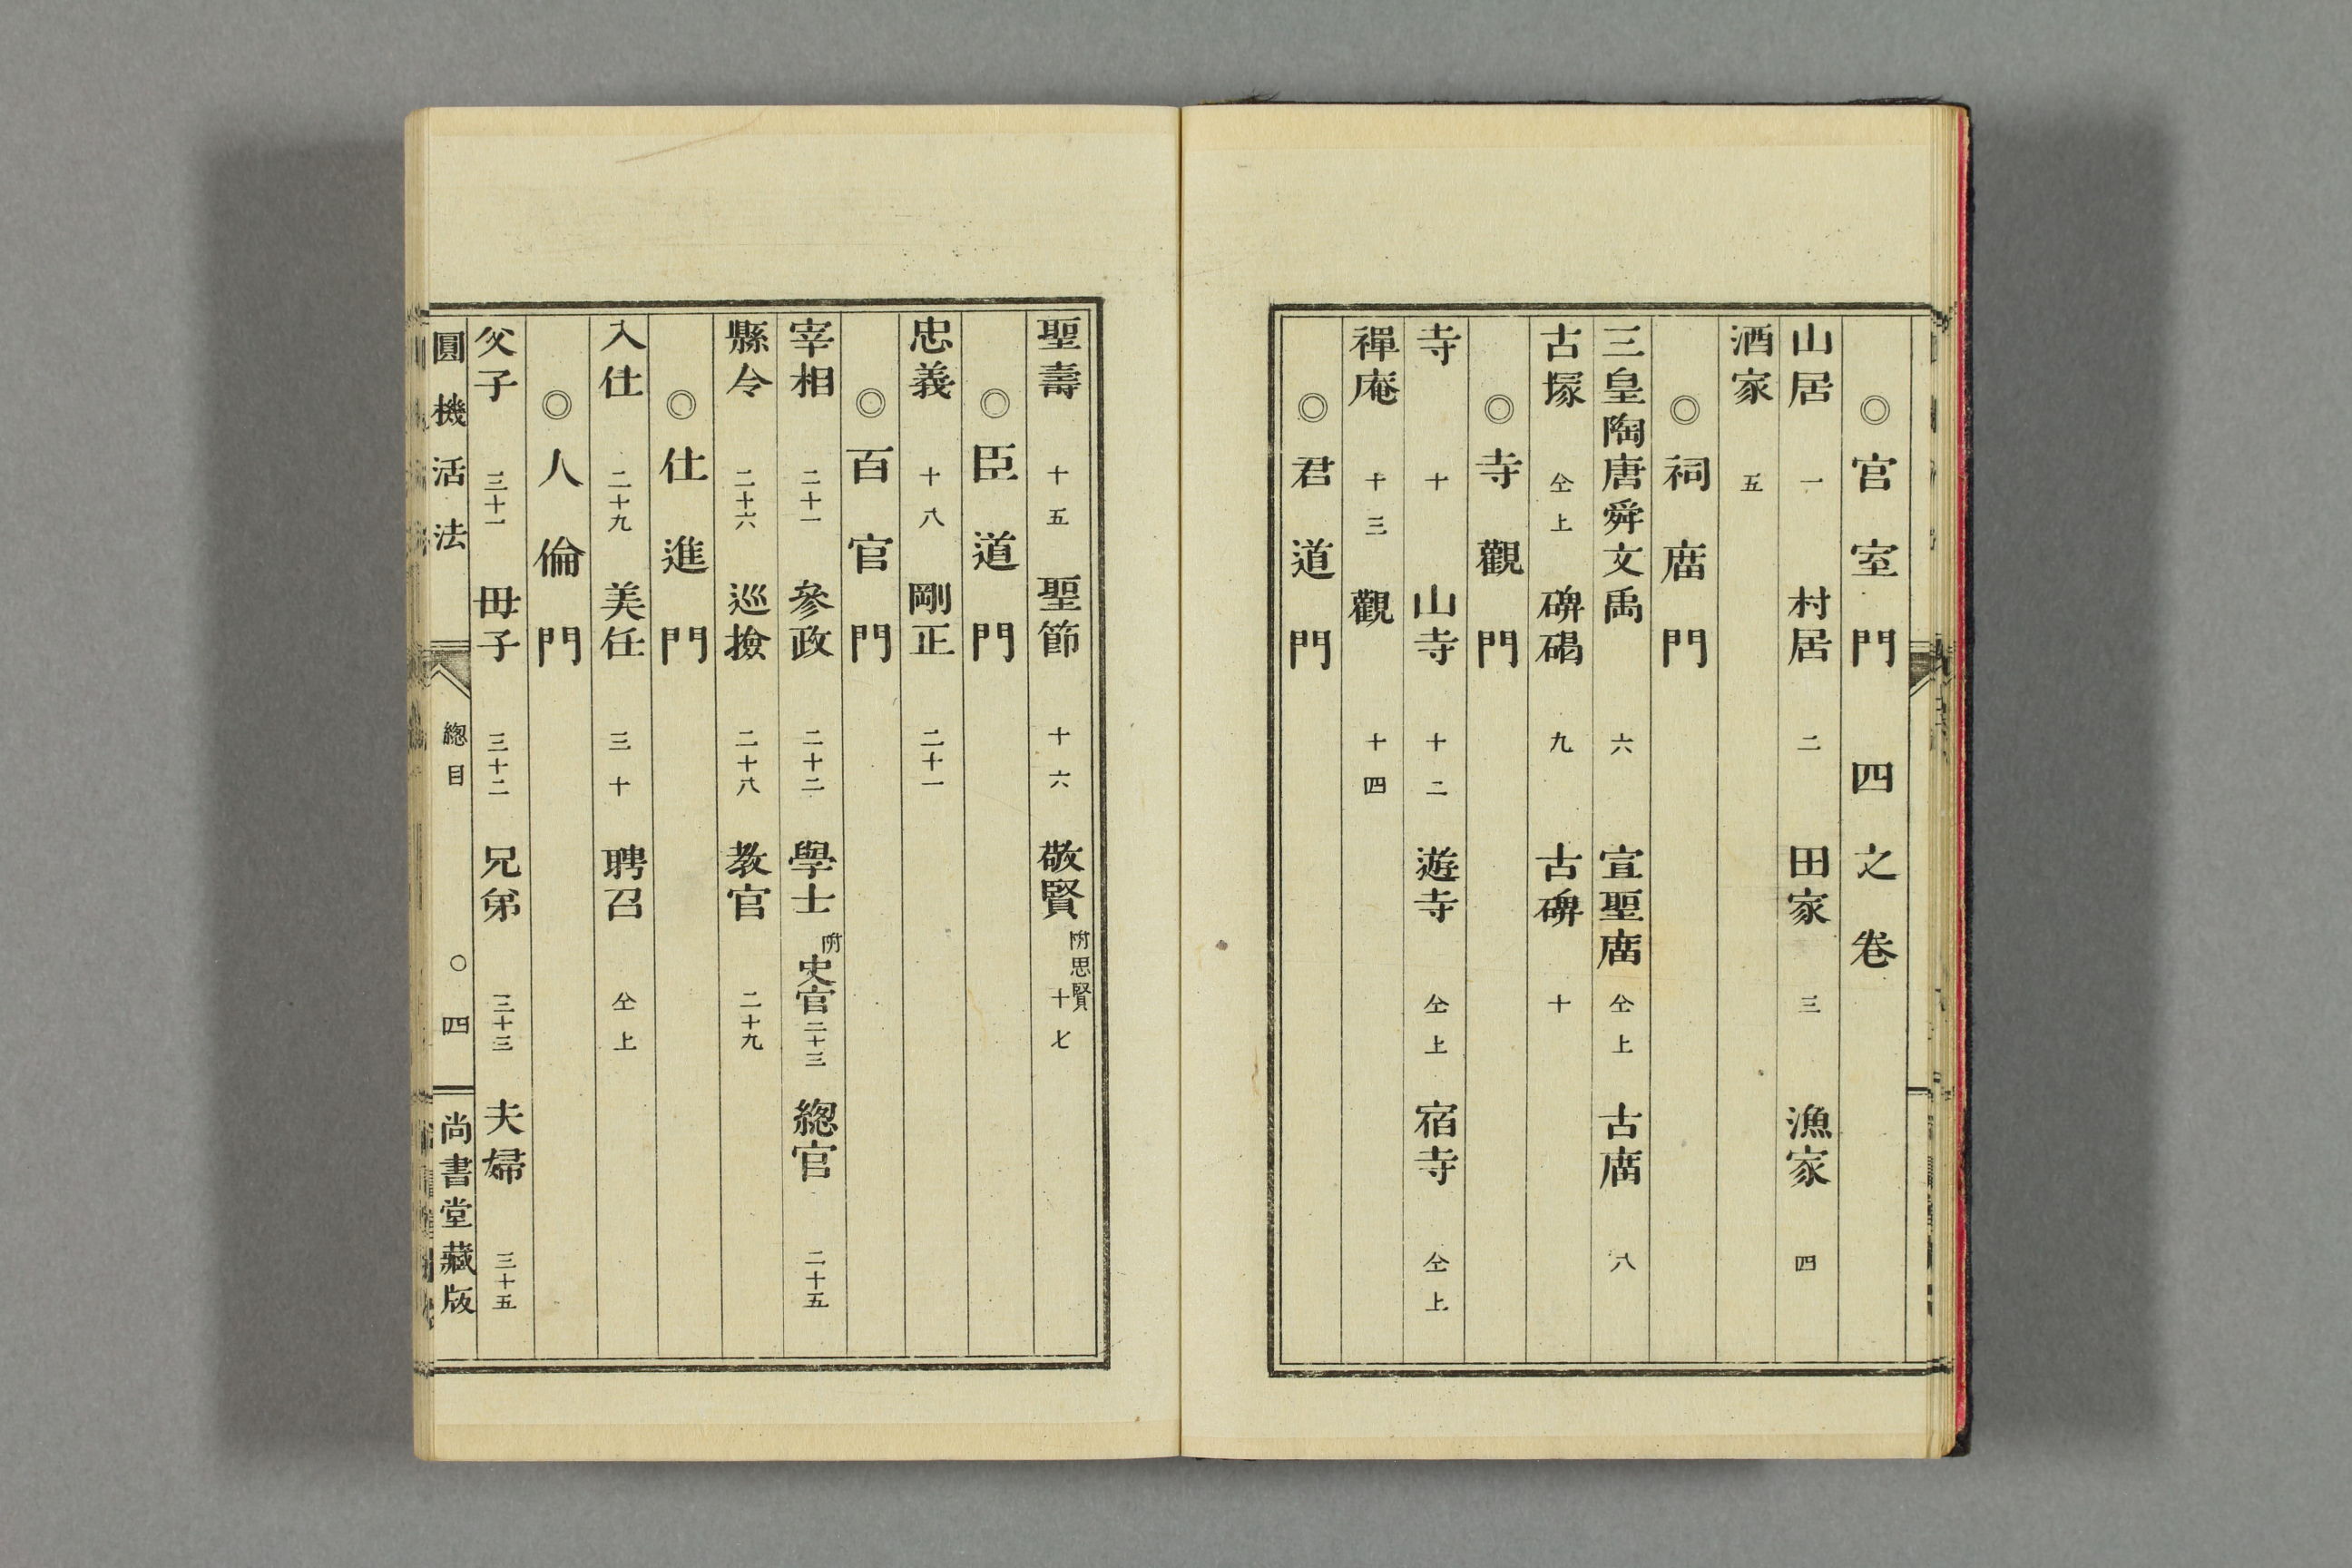 ◎官室門 四之巻
山居 一 村居 二 田家 三 漁家 四
酒家 五
◎祠庿門
三皇陶唐舜文禹 六 宣聖庿 仝上 古庿 八
古塚 仝上 碑碣 九 古碑 十
◎寺觀門
寺 十 山寺 十二 遊寺 仝上 宿寺 仝上
禪庵 十三 觀 十四
◎君道門
聖壽 十五 聖節 十六 敬賢 附思賢 十七
◎臣道門
忠義 十八 剛正 二十一
◎百官門
宰相 二十一 參政 二十二 學士 附史官 二十三 總官 二十五
縣令 二十六 巡撿 二十八 教官 二十九
◎仕進門
入仕 二十九 美任 三十 聘召 仝上
◎人倫門
父子 三十一 母子 三十二 兄弟 三十三 夫婦 三十五
圓機活法 總目 ○ 四 尚書堂藏版